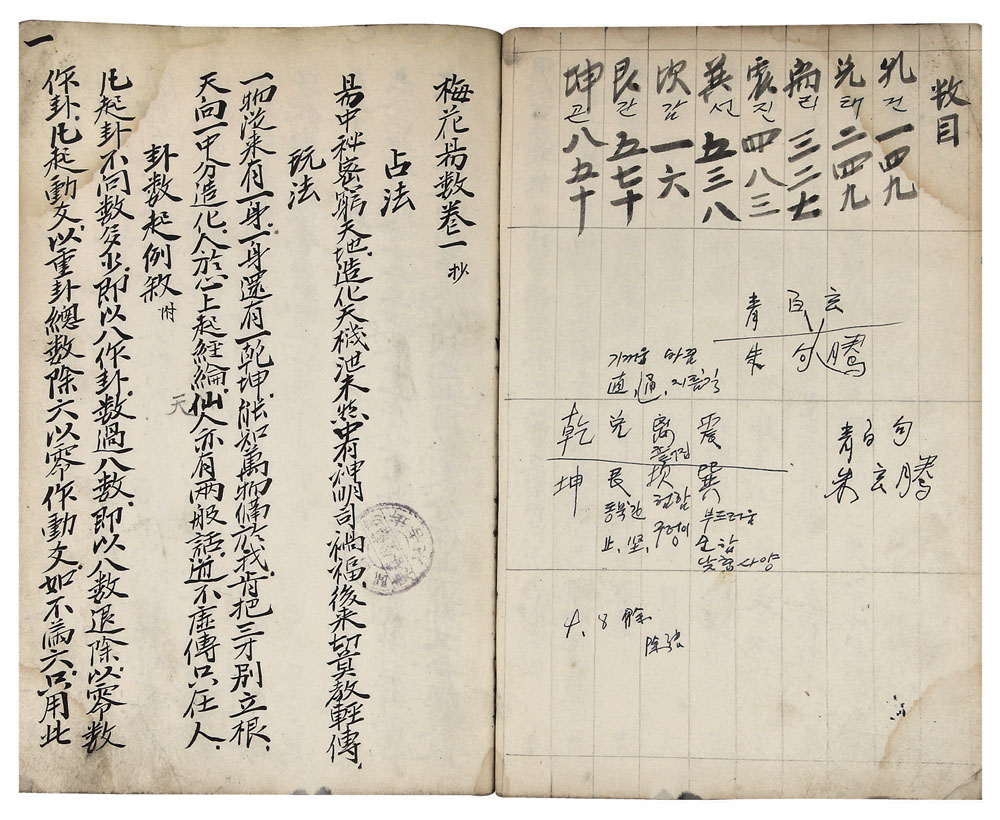 数目
乹 건 一四九
兊 태 二四九
离 리 三二七
震 진 四八三
巽 선 五三八
坎 감 一六
艮 간 五七十
坤 곤 八五十
青 白 玄
朱 句 騰
直, 通,
乾 兌 离 震
坤 艮 坎 巽
동북간 험함 부드러움
止, 坚, 구덩이
낮춤 사양
青 白 句
朱 玄 騰
4, 8 除
梅花昜数卷一 抄
占法
昜中祕密窮天地造化天機泄未然中有神明司禍福後来切莫教輕傳
玩法
一物從来有一身一身還有一乾坤能知萬物備於我肯把三才别立根
天向一中分造化人於心上起經綸仙人亦有兩般話道不虛傳只在人
天
卦数起例敘 附
凡起卦不问数多少即以八作卦数過八数即以八数退除以零数
作卦凡起動爻以重卦總数除六以零作動爻如不滿六只用此
一